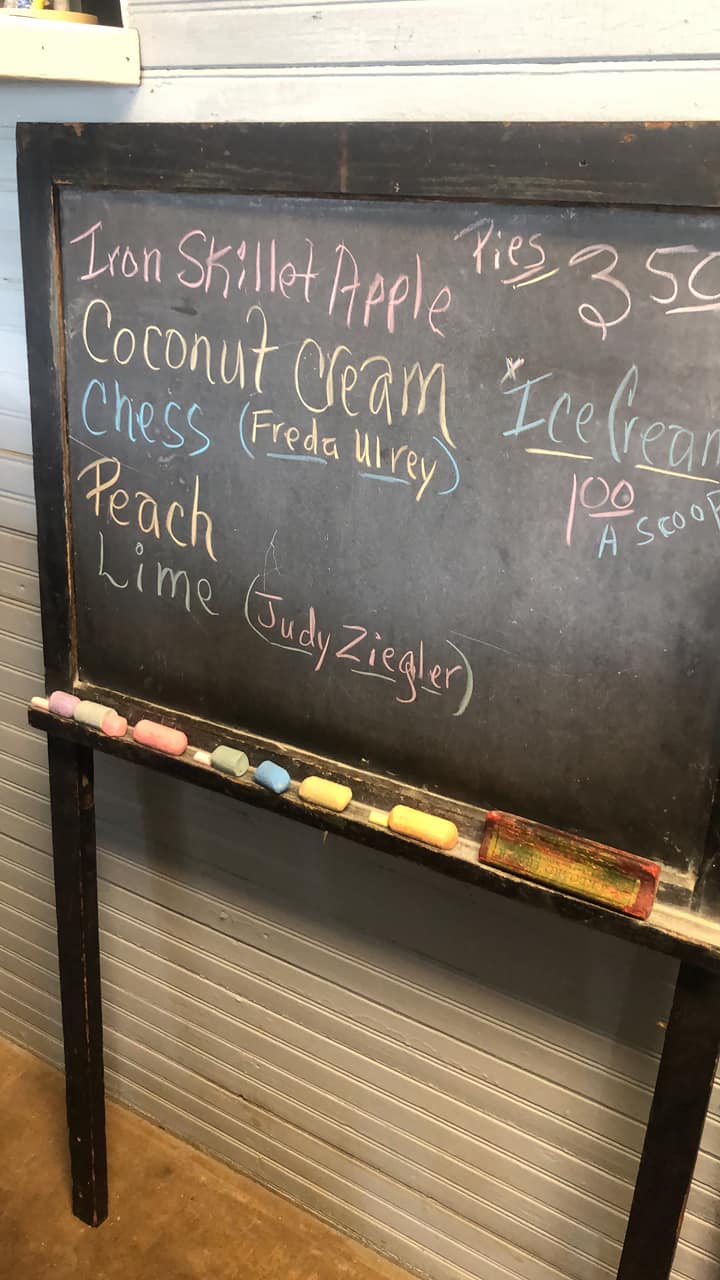 Iron Skillet Apple
Coconut Cream
Chess (Freda Ulrey)
Peach
Lime (Judy Ziegler)
Pies 350
Ice Cream
100
A SCOOP